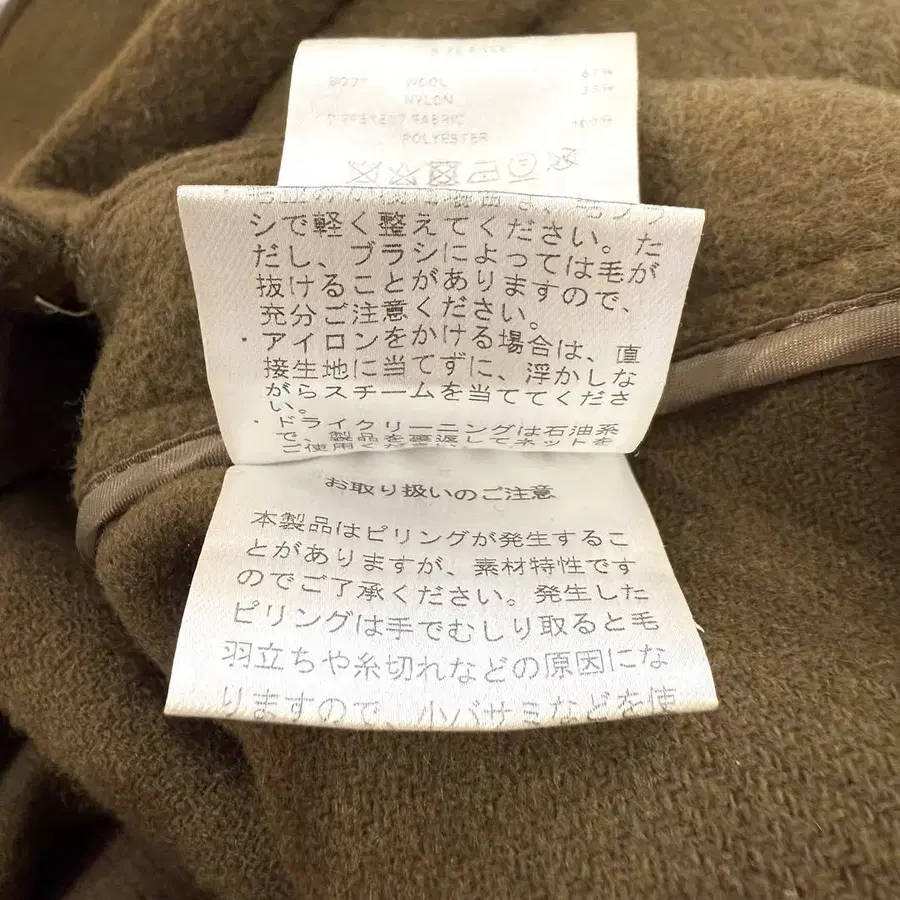 BODY WOOL
NYLON
DIFFERENT FABRIC
POLYESTER
シで軽く整えてください。た
だし、ブラシによっては毛が
抜けることがありますので、
充分ご注意ください。
・アイロンをかける場合は、直
接生地に当てずに、浮かしな
がらスチームを当ててくださ
い。
・ドライクリーニングは石油系
で、製品を裏返してネットを
ご使用ください。
お取り扱いのご注意
本製品はピリングが発生するこ
とがありますが、素材特性です
のでご了承ください。発生した
ピリングは手でむしり取ると毛
羽立ちや糸切れなどの原因にな
りますので、小バサミなどを使